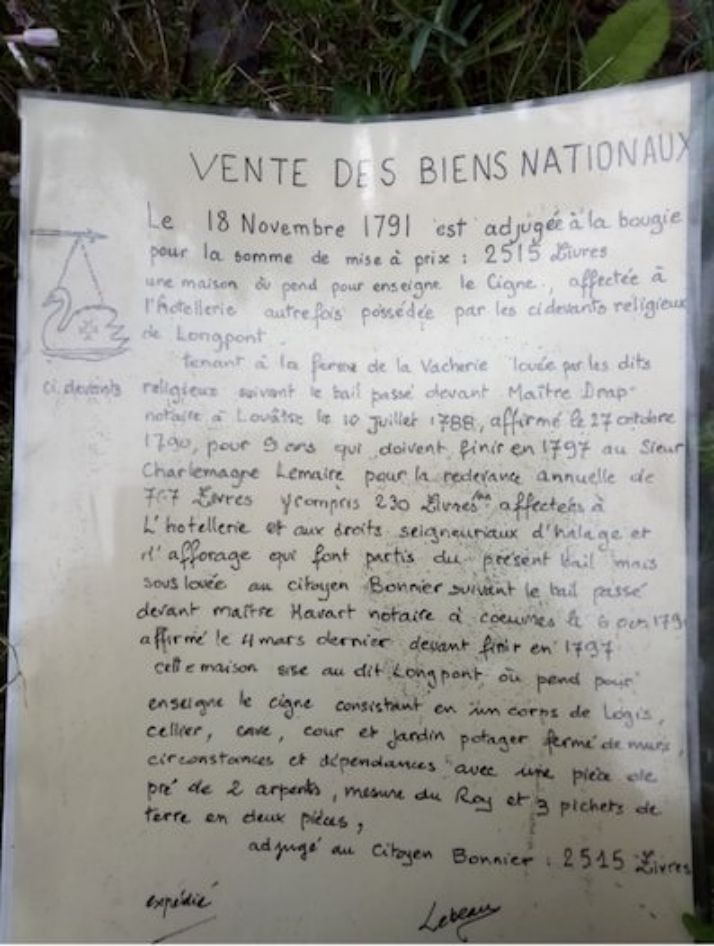 VENTE DES BIENS NATIONAUX
Le 18 Novembre 1791 est adjugée à la bougie
pour la somme de mise à prix : 2515 Livres
une maison où pend pour enseigne le Cigne., affectée à
l'hotellerie autrefois possédée par les cidevants religieux
de Longpont.
tenant à la ferme de la Vacherie louée par les dits
ci. devants religieux suivant le bail passé devant Maître Drap-
notaire à Louâtre le 10 Juillet 1788, affirmé le 27 octobre
1790, pour 9 ans qui doivent finir en 1797 au Sieur
Charlemagne Lemaire pour la redevance annuelle de
Livres y compris 230 Livres affectées à
L'hotellerie et aux droits seigneuriaux d'halage et
d'afforage qui font partis du présent bail mais
sous louée au citoyen Bonnier suivant le bail passé
devant maître Havart notaire à coeuvres le 6
affirmé le 4 mars dernier devant finir en 1797
cette maison sise au dit Longpont où pend pour
enseigne le cigne consistant en un corps de Logis,
cellier, cave, cour et jardin potager fermé de murs,
circonstances et dépendances avec une pièce de
pré de 2 arpents, mesure du Roy et 3 pichets de
terre en deux pièces,
adjugé au Citoyen Bonnier : 2515 Livres
expédié
Lebeau